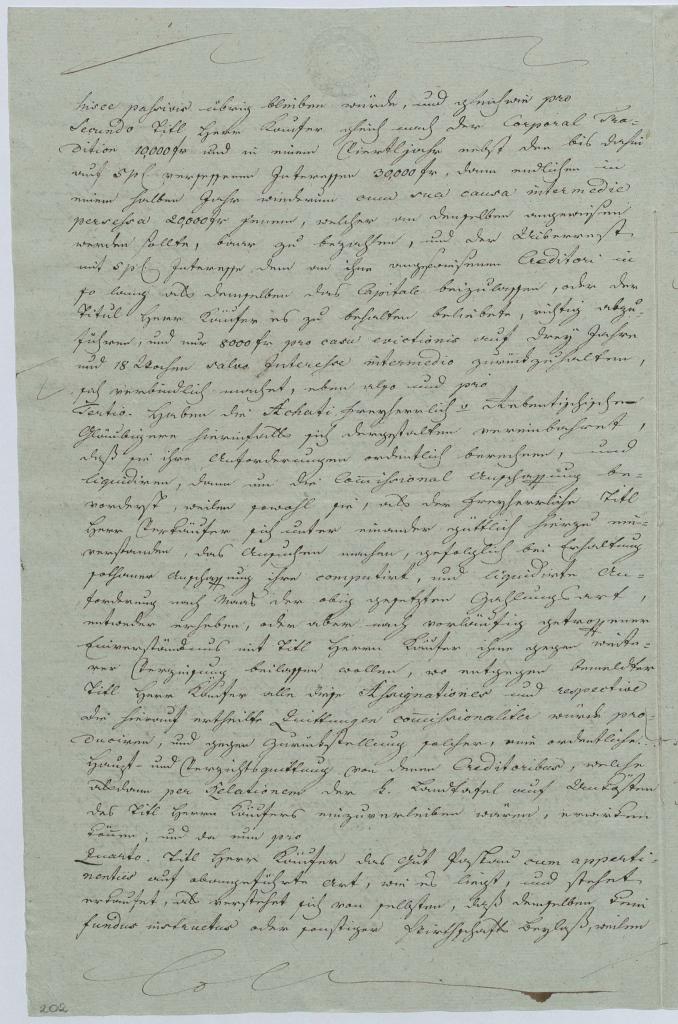 hisce passivis übrig bleiben würde, und gleichwie pro
Secundo Titl Herr Käufer gleich nach der Corporal Tra-
dition 10,000 fr und in einem Viertljahr nebst den bis dahin
auf 5 pC versessenen Interessen 30,000 fr, dann endlichen in
einem halben Jahr wiederum cum sua causa intermedie
percepta 20,000 fr jenem, welcher an denselben angewiesen
werden sollte, baar zu bezahlen, und der Uiberrest
mit 5 pC Interesse dem an ihne angewiesenen Creditori in
so lang als demselben das Capitale beizulassen, oder der
Titul Herr Käufer es zu behalten beliebete, richtig abzu-
führen, und nur 8000 fr pro casu evictionis auf drey Jahre
und 18 Wochen salvo Interesse intermedio zurückzuhalten,
sich verbindlich machet, eben also und pro
Tertio. Haben die Achati Freyherrlich v
Gläubigere hierinfalls sich dergestalten vereinbahret,
daß sie ihre Anforderungen ordentlich berechnen, und
liquidiren, dann um die Commissional Anschaffung be-
vorderst, weilen sowohl sie, als der Freyherrliche Titl
Herr Verkäufer sich unter einander güttlich hierzu ein-
verstanden, das Ansuchen machen, gefolglich bei Erhaltung
sothaner Anschaffung ihre computirt, und liquidirte An-
forderung nach Maas der obig gesetzten Zahlungsart,
entweder erheben, oder aber nach vorläufig getroffener
Einverständnus mit Titl Herrn Käufer ihne gegen weite-
rer Verzinsung beilassen wollen, wo entgegen bemeldter
Titl Herr Käufer alle diese Assignationes und respective
die hierauf ertheilte Quittungen commissionaliter würde pro-
duciren, und gegen Zurückstellung solcher, eine ordentliche
Haupt- und Verzichtsquittung von denen Creditoribus, welche
alsdann per Relationem der k. Landtafel auf Unkosten
des Titl Herrn Käufers einzuverleiben wären, erwarten
können; und da nun pro
Quarto. Titl Herr Käufer das Gut Paskau cum apperti-
nentiis auf obangeführte Art, wie es liegt, und stehet
erkaufet, als verstehet sich von selbsten, daß demselben kein
fundus instructus oder sonstiger Wirthschafts Beylaß, weilen
202